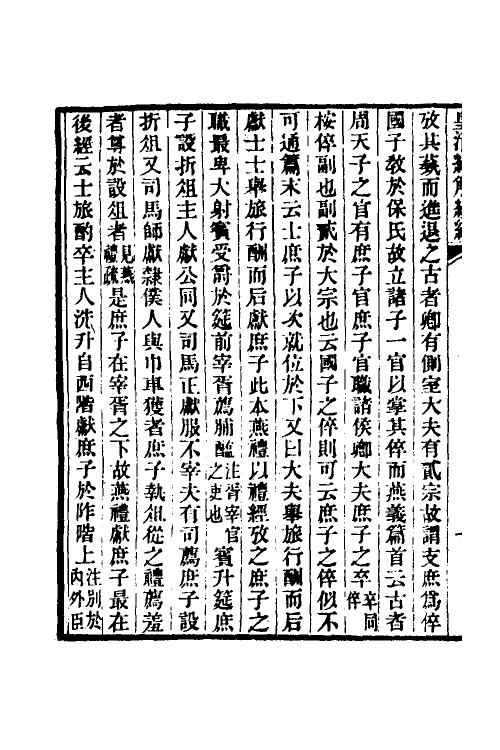 攷其藝而進退之古者卿有側室大夫有貳宗故謂支庶爲倅
國子敎於保氏故立諸子一官以掌其倅而燕義篇首云古者
周天子之官有庶子官庶子官職諸侯卿大夫庶子之卒卒同倅
桉倅副也副貳於大宗也云國子之倅則可云庶子之倅似不
可通篇末云士庶子以次就位於下又曰大夫舉旅行酬而后
獻士士舉旅行酬而后獻庶子此本燕禮以禮經攷之庶子之
職最卑大射賓受爵於筵前宰胥薦脯醢注胥宰官之吏也賓升筵庶
子設折俎主人獻公同又司馬正獻服不宰夫有司薦庶子設
折俎又司馬師獻隸僕人與巾車獲者庶子執俎從之禮薦羞
者尊於設俎者見燕禮疏是庶子在宰胥之下故燕禮獻庶子最在
後經云士旅酌卒主人洗升自西階獻庶子於阼階上注別於內外臣